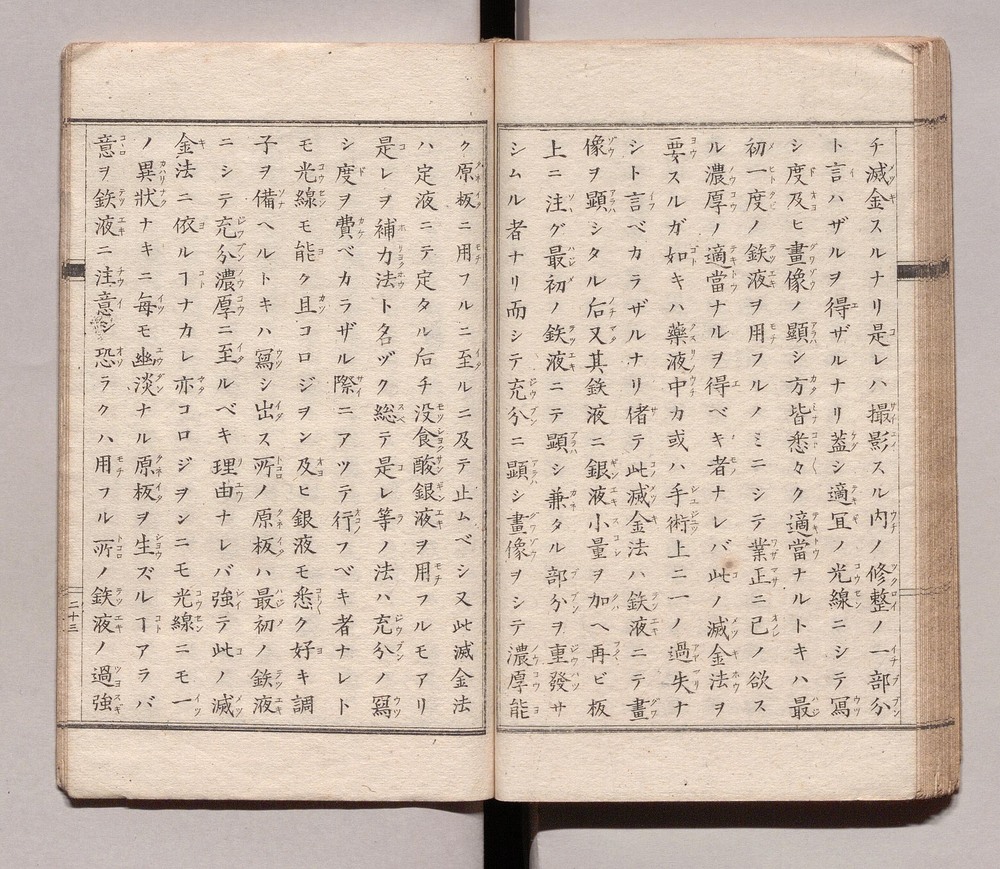 チ滅金スルナリ是レハ撮影スル内ノ修整ノ一部分
ト言ハザルヲ得ザルナリ蓋シ適冝ノ光線ニシテ寫
シ度及ヒ畫像ノ顕シ方皆悉々ク適當ナルトキハ最
初一度ノ鉄液ヲ用フルノミニシテ業正ニ已ノ欲ス
ル濃厚ノ適當ナルヲ得ベキ者ナレバ此ノ滅金法ヲ
要スルガ如キハ藥液中カ或ハ手術上ニ一ノ過失ナ
シト言ベカラザルナリ偖テ此滅金法ハ鉄液ニテ畫
像ヲ顕シタル后又其鉄液ニ銀液小量ヲ加ヘ再ビ板
上ニ注グ最初ノ鉄液ニテ顕シ兼タル部分ヲ重發サ
シムル者ナリ而シテ充分ニ顕シ畫像ヲシテ濃厚能
ク原板ニ用フルニ至ルニ及テ止ムベシ又此滅金法
ハ定液ニテ定タル后チ没食酸銀液ヲ用フルモアリ
是レヲ補力法ト名ヅク総テ是レ等ノ法ハ充分ノ寫
シ度ヲ費ベカラザル際ニアツテ行フベキ者ナレト
モ光線モ能ク且コロジヲン及ヒ銀液モ悉ク好キ調
子ヲ備ヘルトキハ寫シ出ス所ノ原板ハ最初ノ鉄液
ニシテ充分濃厚ニ至ルベキ理由ナレバ強テ此ノ滅
金法ニ依ルヿナカレ亦コロジヲンニモ光線ニモ一
ノ異狀ナキニ毎モ幽淡ナル原板ヲ生ズルヿアラバ
意ヲ鉄液ニ注意シ恐ラクハ用フル所ノ鉄液ノ過強
二十三